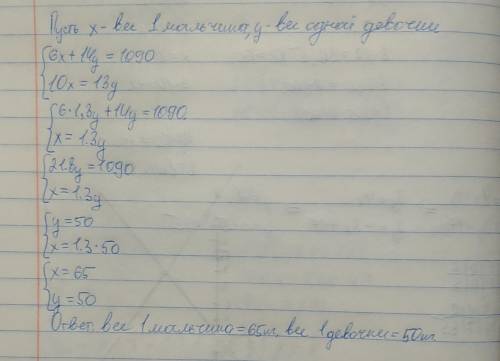 Пусть x - вес 1 мальчика, y - вес одной девочки
6x + 14y = 1090
10x = 13y
6·1,3y + 14y = 1090
x = 1.3y
21.8y = 1090
x = 1.3y
y = 50
x = 1.3·50
x = 65
y = 50
Ответ: вес 1 мальчика = 65кг, вес 1 девочки = 50кг.